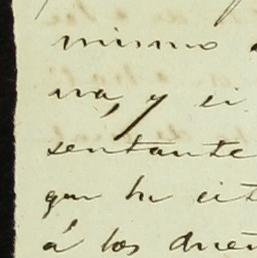 mismo
na, y ei
sentante
que he cit
á los dueñ